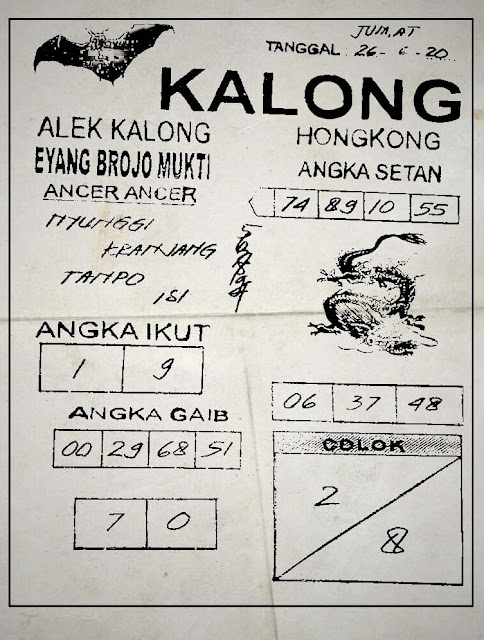 JUM,AT
TANGGAL : 26 - 6 - 20
KALONG
ALEK KALONG
EYANG BROJO MUKTI
ANCER ANCER
NYUNGGI
KRANJANG
TAMPO
ISI
HONGKONG
ANGKA SETAN
74 89 10 55
ANGKA IKUT
1 9
ANGKA GAIB
00 29 68 51
7 0
06 37 48
COLOK
2
8